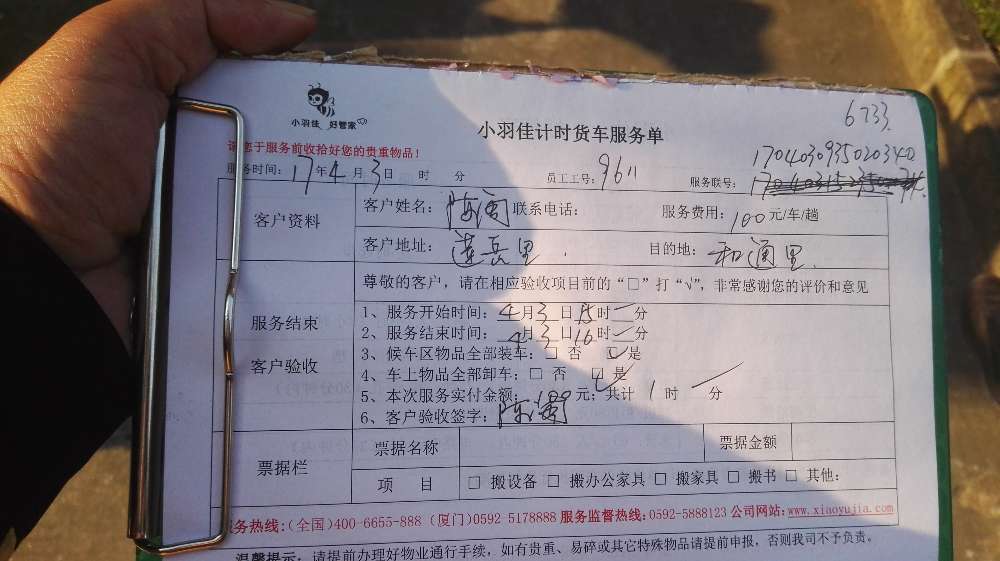 6733
小羽佳 好管家
小羽佳计时货车服务单
请您于服务前收拾好您的贵重物品!
1704030935020340
服务时间: 17年4月3日 时 分 员工工号: 9611 服务联号:
客户资料
客户姓名: 陈阁 联系电话: 服务费用: 100元/车/趟
客户地址: 莲岳里. 目的地: 和通里.
尊敬的客户,请在相应验收项目前的“□”打“√”,非常感谢您的评价和意见
服务结束
客户验收
1、服务开始时间: 4月3日15时 分
2、服务结束时间: 4月3日16时 分
3、候车区物品全部装车: □ 否 ☑ 是
4、车上物品全部卸车: □ 否 ☑ 是
5、本次服务实付金额: 100元; 共计 1时 分
6、客户验收签字: 陈阁
票据栏
票据名称 票据金额
项 目 □ 搬设备 □ 搬办公家具 □ 搬家具 □ 搬书 □ 其他:
服务热线:(全国)400-6655-888 (厦门)0592 5178888 服务监督热线:0592-5888123 公司网站:www.xiaoyujia.com
温馨提示: 请提前办理好物业通行手续,如有贵重、易碎或其它特殊物品请提前申报,否则我司不予负责。